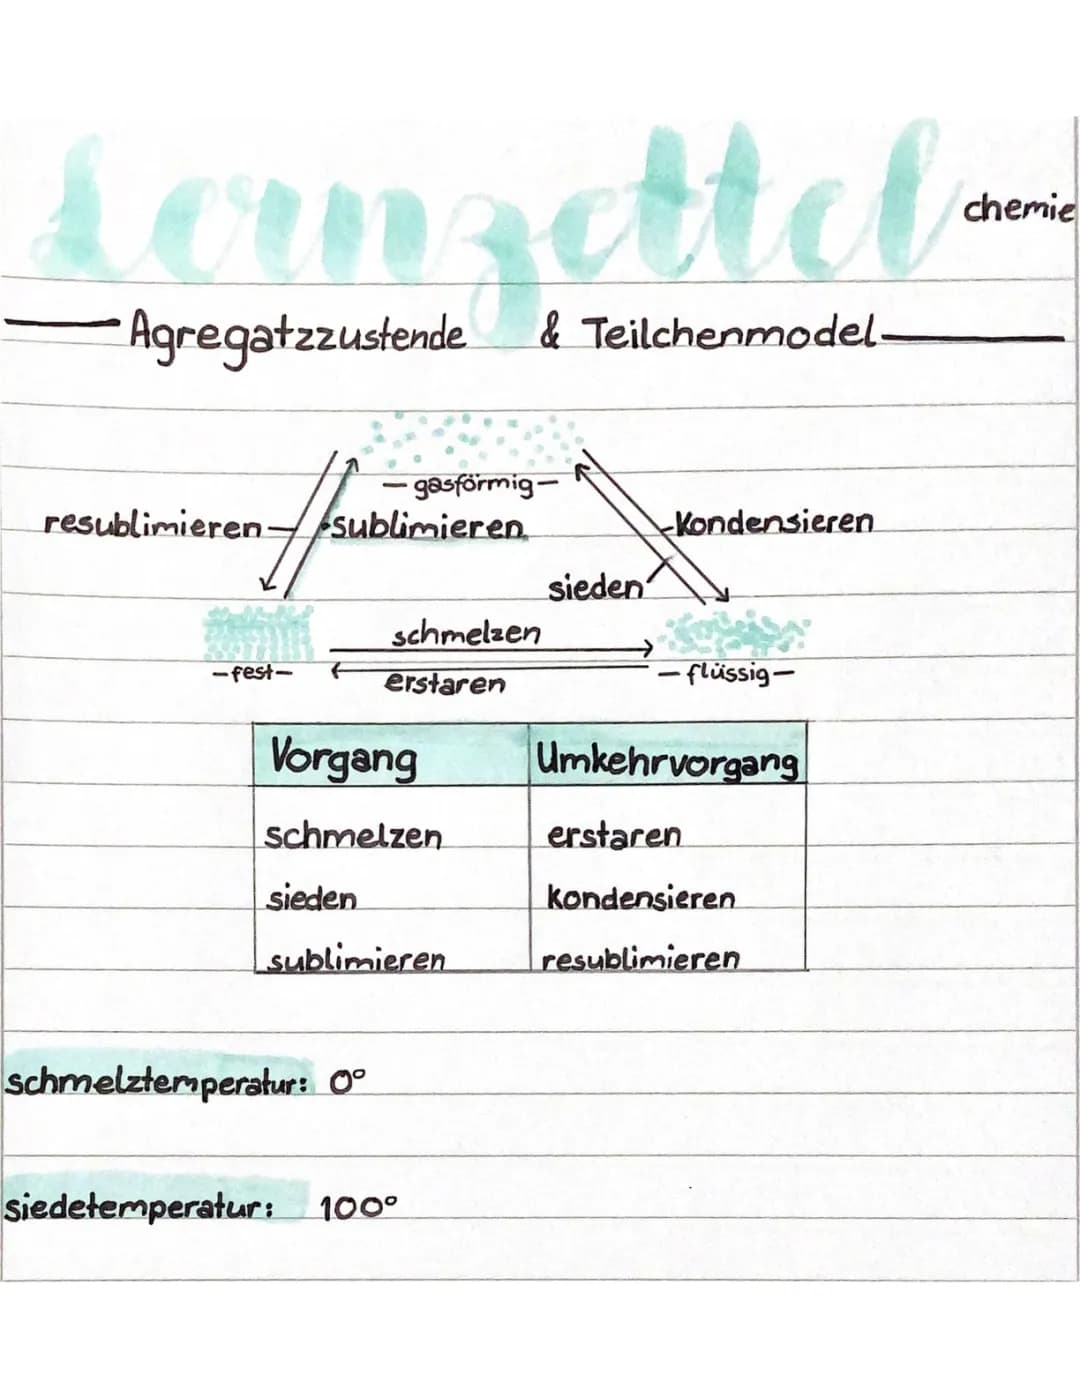 Lernzettel chemie
Agregatzzustende & Teilchenmodel
- gasförmig -
resublimieren sublimieren Kondensieren
sieden
schmelzen
- fest - - flüssig -
erstaren
Vorgang Umkehrvorgang
schmelzen erstaren
sieden kondensieren
sublimieren resublimieren
schmelztemperatur: 0°
siedetemperatur: 100°